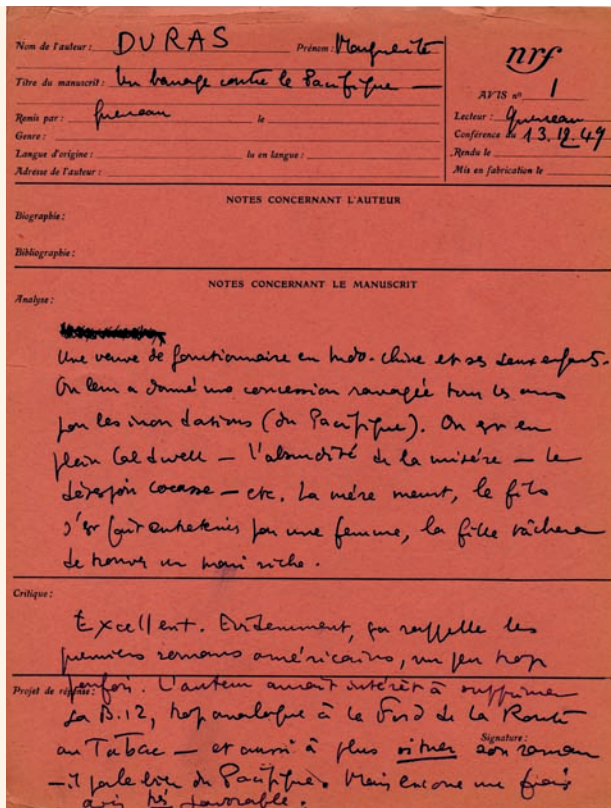 Nom de l'auteur : DURAS Prénom : Marguerite
Titre du manuscrit : Un barrage contre le Pacifique —
Remis par : Queneau le
Genre :
Langue d'origine : lu en langue :
Adresse de l'auteur :
nrf
AVIS nº 1
Lecteur : Queneau
Conférence du 13.12.49
Rendu le
Mis en fabrication le
NOTES CONCERNANT L'AUTEUR
Biographie :
Bibliographie :
NOTES CONCERNANT LE MANUSCRIT
Analyse :
Une veuve de fonctionnaire en Indo-Chine et ses deux enfants.
On leur a donné une concession ravagée tous les ans
par les inondations (du Pacifique). On est en
plein Caldwell — l'absurdité de la misère — le
désespoir cocasse — etc. La mère meurt, le fils
s'est fait entretenir par une femme, la fille tâchera
de trouver un mari riche.
Critique :
Excellent. Evidemment, ça rappelle les
premiers romans américains, un peu trop
parfois. L'auteur aurait intérêt à supprimer
Projet de réponse :
la B.12, trop analogue à la Ford de la Route
Signature :
au Tabac — et aussi à plus situer son roman
— il parle bien du Pacifique. Mais encore une fois
avis très favorable.